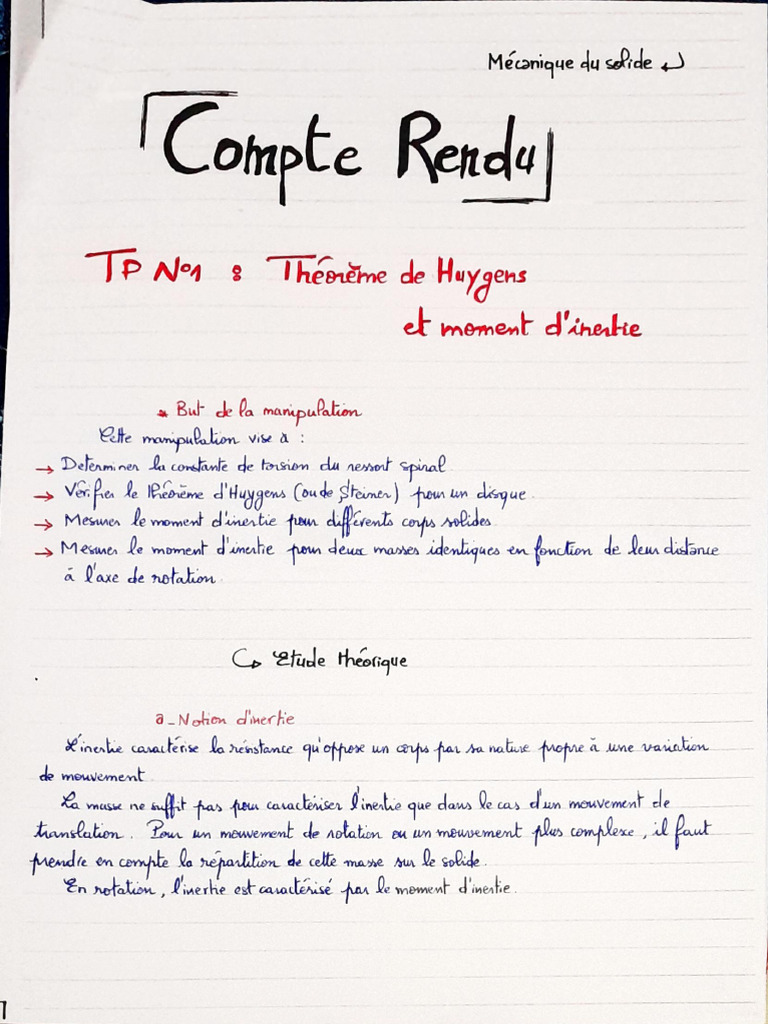 Mécanique du solide
Compte Rendu
TP N°1 : Théorème de Huygens
et moment d'inertie
But de la manipulation
Cette manipulation vise à :
→ Determiner la constante de torsion du ressort spiral.
→ Vérifier le théorème d'Huygens (ou de Steiner) pour un disque.
→ Mesurer le moment d'inertie pour différents corps solides.
→ Mesurer le moment d'inertie pour deux masses identiques en fonction de leur distance
à l'axe de rotation.
Etude théorique
a_Notion d'inertie
L'inertie caractérise la résistance qu'oppose un corps par sa nature propre à une variation
de mouvement
La masse ne suffit pas pour caractériser l'inertie que dans le cas d'un mouvement de
translation. Pour un mouvement de rotation ou un mouvement plus complexe, il faut
prendre en compte la répartition de cette masse sur le solide.
En rotation, l'inertie est caractérisé par le moment d'inertie.
1